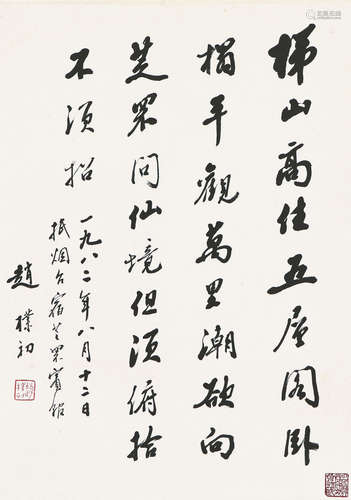 梯山高住五层阁卧
榻平觀萬里潮欲向
芝罘问仙境但须俯拾
不须招
一九八二年八月十二日
抵烟台宿芝罘賓館
趙樸初